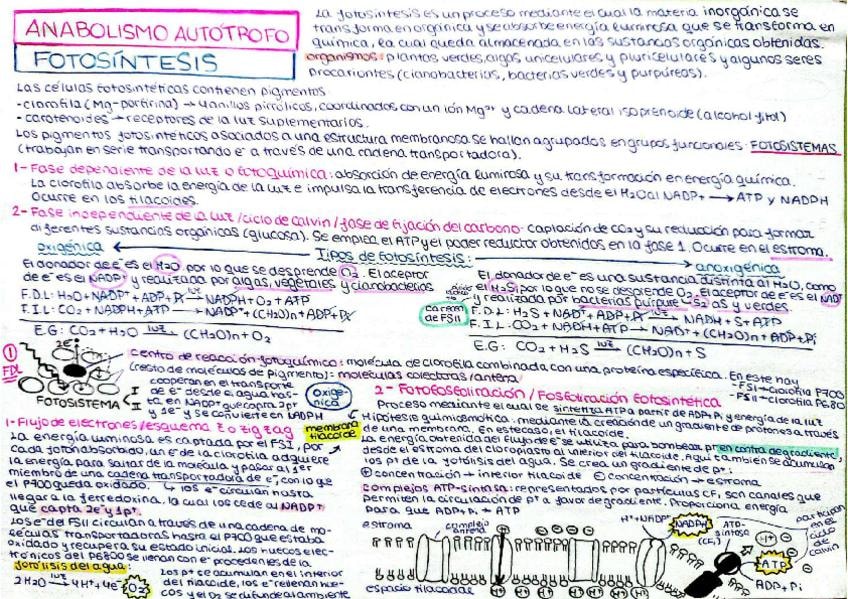 ANABOLISMO AUTÓTROFO
FOTOSÍNTESIS
La fotosíntesis es un proceso mediante el cual la materia inorgánica se
transforma en orgánica y se absorbe energía luminosa que se transforma en
química, la cual queda almacenada en las sustancias orgánicas obtenidas.
organismos: plantas verdes, algas unicelulares y pluricelulares y algunos seres
procariontes (cianobacterias, bacterias verdes y purpúreas).
Las células fotosintéticas contienen pigmentos
-clorofila (Mg-porfirina) → 4 anillos pirrólicos, coordinados con un ión Mg²⁺ y cadena lateral isoprenoide (alcohol fitol)
-carotenoides → receptores de la luz suplementarios.
Los pigmentos fotosintéticos asociados a una estructura membranosa se hallan agrupados en grupos funcionales: FOTOSISTEMAS
(trabajan en serie transportando e⁻ a través de una cadena transportadora).
1-Fase dependiente de la luz o fotoquímica: absorción de energía luminosa y su transformación en energía química.
La clorofila absorbe la energía de la luz e impulsa la transferencia de electrones desde el H₂O al NADP⁺ → ATP y NADPH
Ocurre en los tilacoides.
2-Fase independiente de la luz / ciclo de Calvin / fase de fijación del carbono: captación de CO₂ y su reducción para formar
diferentes sustancias orgánicas (glucosa). Se emplea el ATP y el poder reductor obtenidos en la fase 1. Ocurre en el estroma.
Tipos de fotosíntesis:
oxigénica
El donador de e⁻ es el H₂O, por lo que se desprende O₂. El aceptor
de e⁻ es el NADP⁺ y realizada por algas, vegetales y cianobacterias
F.D.L: H₂O + NADP⁺ + ADP + Pi luz→ NADPH + O₂ + ATP
F.I.L: CO₂ + NADPH + ATP → NADP⁺ + (CH₂O)n + ADP + Pi
E.G: CO₂ + H₂O luz→ (CH₂O)n + O₂
anoxigénica
El donador de e⁻ es una sustancia distinta al H₂O, como
el H₂S, por lo que no se desprende O₂. El aceptor de e⁻ es el NAD⁺
y realizada por bacterias purpúreas y verdes.
carecen
de FSII
F.D.L: H₂S + NAD⁺ + ADP + Pi luz→ NADH + S + ATP
F.I.L: CO₂ + NADH + ATP → NAD⁺ + (CH₂O)n + ADP + Pi
E.G: CO₂ + H₂S luz→ (CH₂O)n + S
① FDL
2e⁻
FOTOSISTEMA
I
II
centro de reacción fotoquímico: molécula de clorofila combinada con una proteína específica. En este hay
-FSI→clorofila P700
-FSII→clorofila P680
(resto de moléculas de pigmento): moléculas colectoras/antena
cooperan en el transporte
de e⁻ desde el agua has-
ta en NADP⁺ que capta 2p⁺
y 2e⁻ y se convierte en NADPH
Oxigé-
nica
1-Flujo de electrones/esquema Z o zigzag
membrana
tilacoide
La energía luminosa es captada por el FSI, por
cada fotón absorbido, un e⁻ de la clorofila adquiere
la energía para saltar de la molécula y pasar al 1er
miembro de una cadena transportadora de e⁻, con lo que
el P700 queda oxidado. → los e⁻ circulan hasta
llegar a la ferredoxina, la cual los cede al NADP⁺
que capta 2e⁻ y 1p⁺.
Los e⁻ del FSII circulan a través de una cadena de mo-
léculas transportadoras hasta el P700 que estaba
oxidado y recupera su estado inicial. Los huecos elec-
trónicos del P680 se llenan con e⁻ procedentes de la
fotólisis del agua:
2H₂O luz→ 4H⁺ + 4e⁻ O₂
Los p⁺ se acumulan en el interior
del tilacoide, los e⁻ rellenan hue-
cos y el O₂ se difunde al ambiente
2-Fotofosforilación / Fosforilación fotosintética
Proceso mediante el cual se sintetiza ATP a partir de ADP + Pi y energía de la luz
Hipótesis quimiosmótica: mediante la creación de un gradiente de protones a través
de una membrana, en este caso, el tilacoide.
La energía obtenida del flujo de e⁻ se utiliza para bombear p⁺ en contra de gradiente,
desde el estroma del cloroplasto al interior del tilacoide. Aquí también se acumulan
los p⁺ de la fotólisis del agua. Se crea un gradiente de p⁺:
⊕ concentración → interior tilacoide ⊖ concentración → estroma
Complejos ATP-sintasa: representados por partículas CF₁, son canales que
permiten la circulación de p⁺ a favor de gradiente. Proporciona energía
para que ADP + Pi → ATP
estroma
complejo
antena
H⁺
H⁺+NADP⁺
NADPH
ATP-
sintasa
(CF₁)
H⁺
participan
en el
ciclo
de
calvin
ATP
ADP + Pi
espacio tilacoidal
H⁺